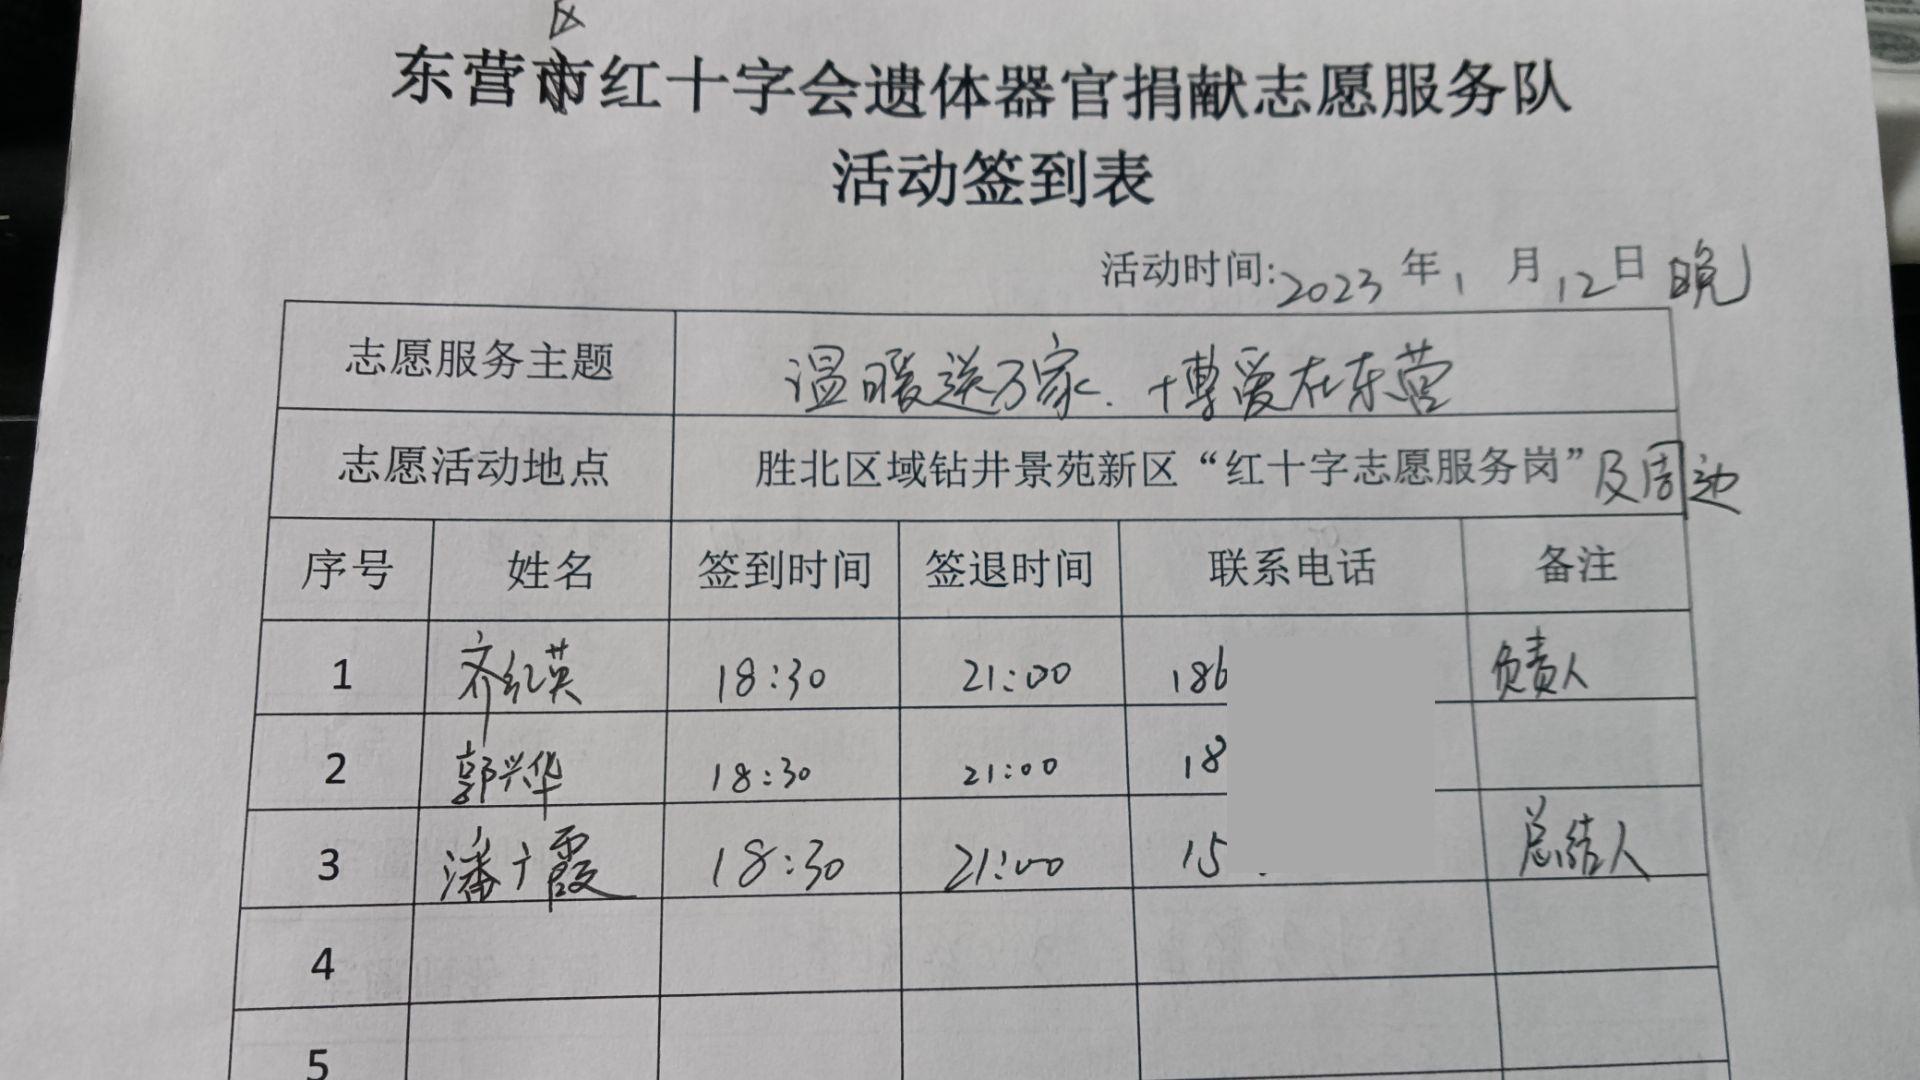 区
东营市红十字会遗体器官捐献志愿服务队
活动签到表
活动时间:2023年1月12日晚
志愿服务主题 温暖送万家.博爱在东营
志愿活动地点 胜北区域钻井景苑新区“红十字志愿服务岗”及周边
序号 姓名 签到时间 签退时间 联系电话 备注
1 齐红英 18:30 21:00 186 负责人
2 郭兴华 18:30 21:00 18
3 潘广霞 18:30 21:00 15 总结人
4
5